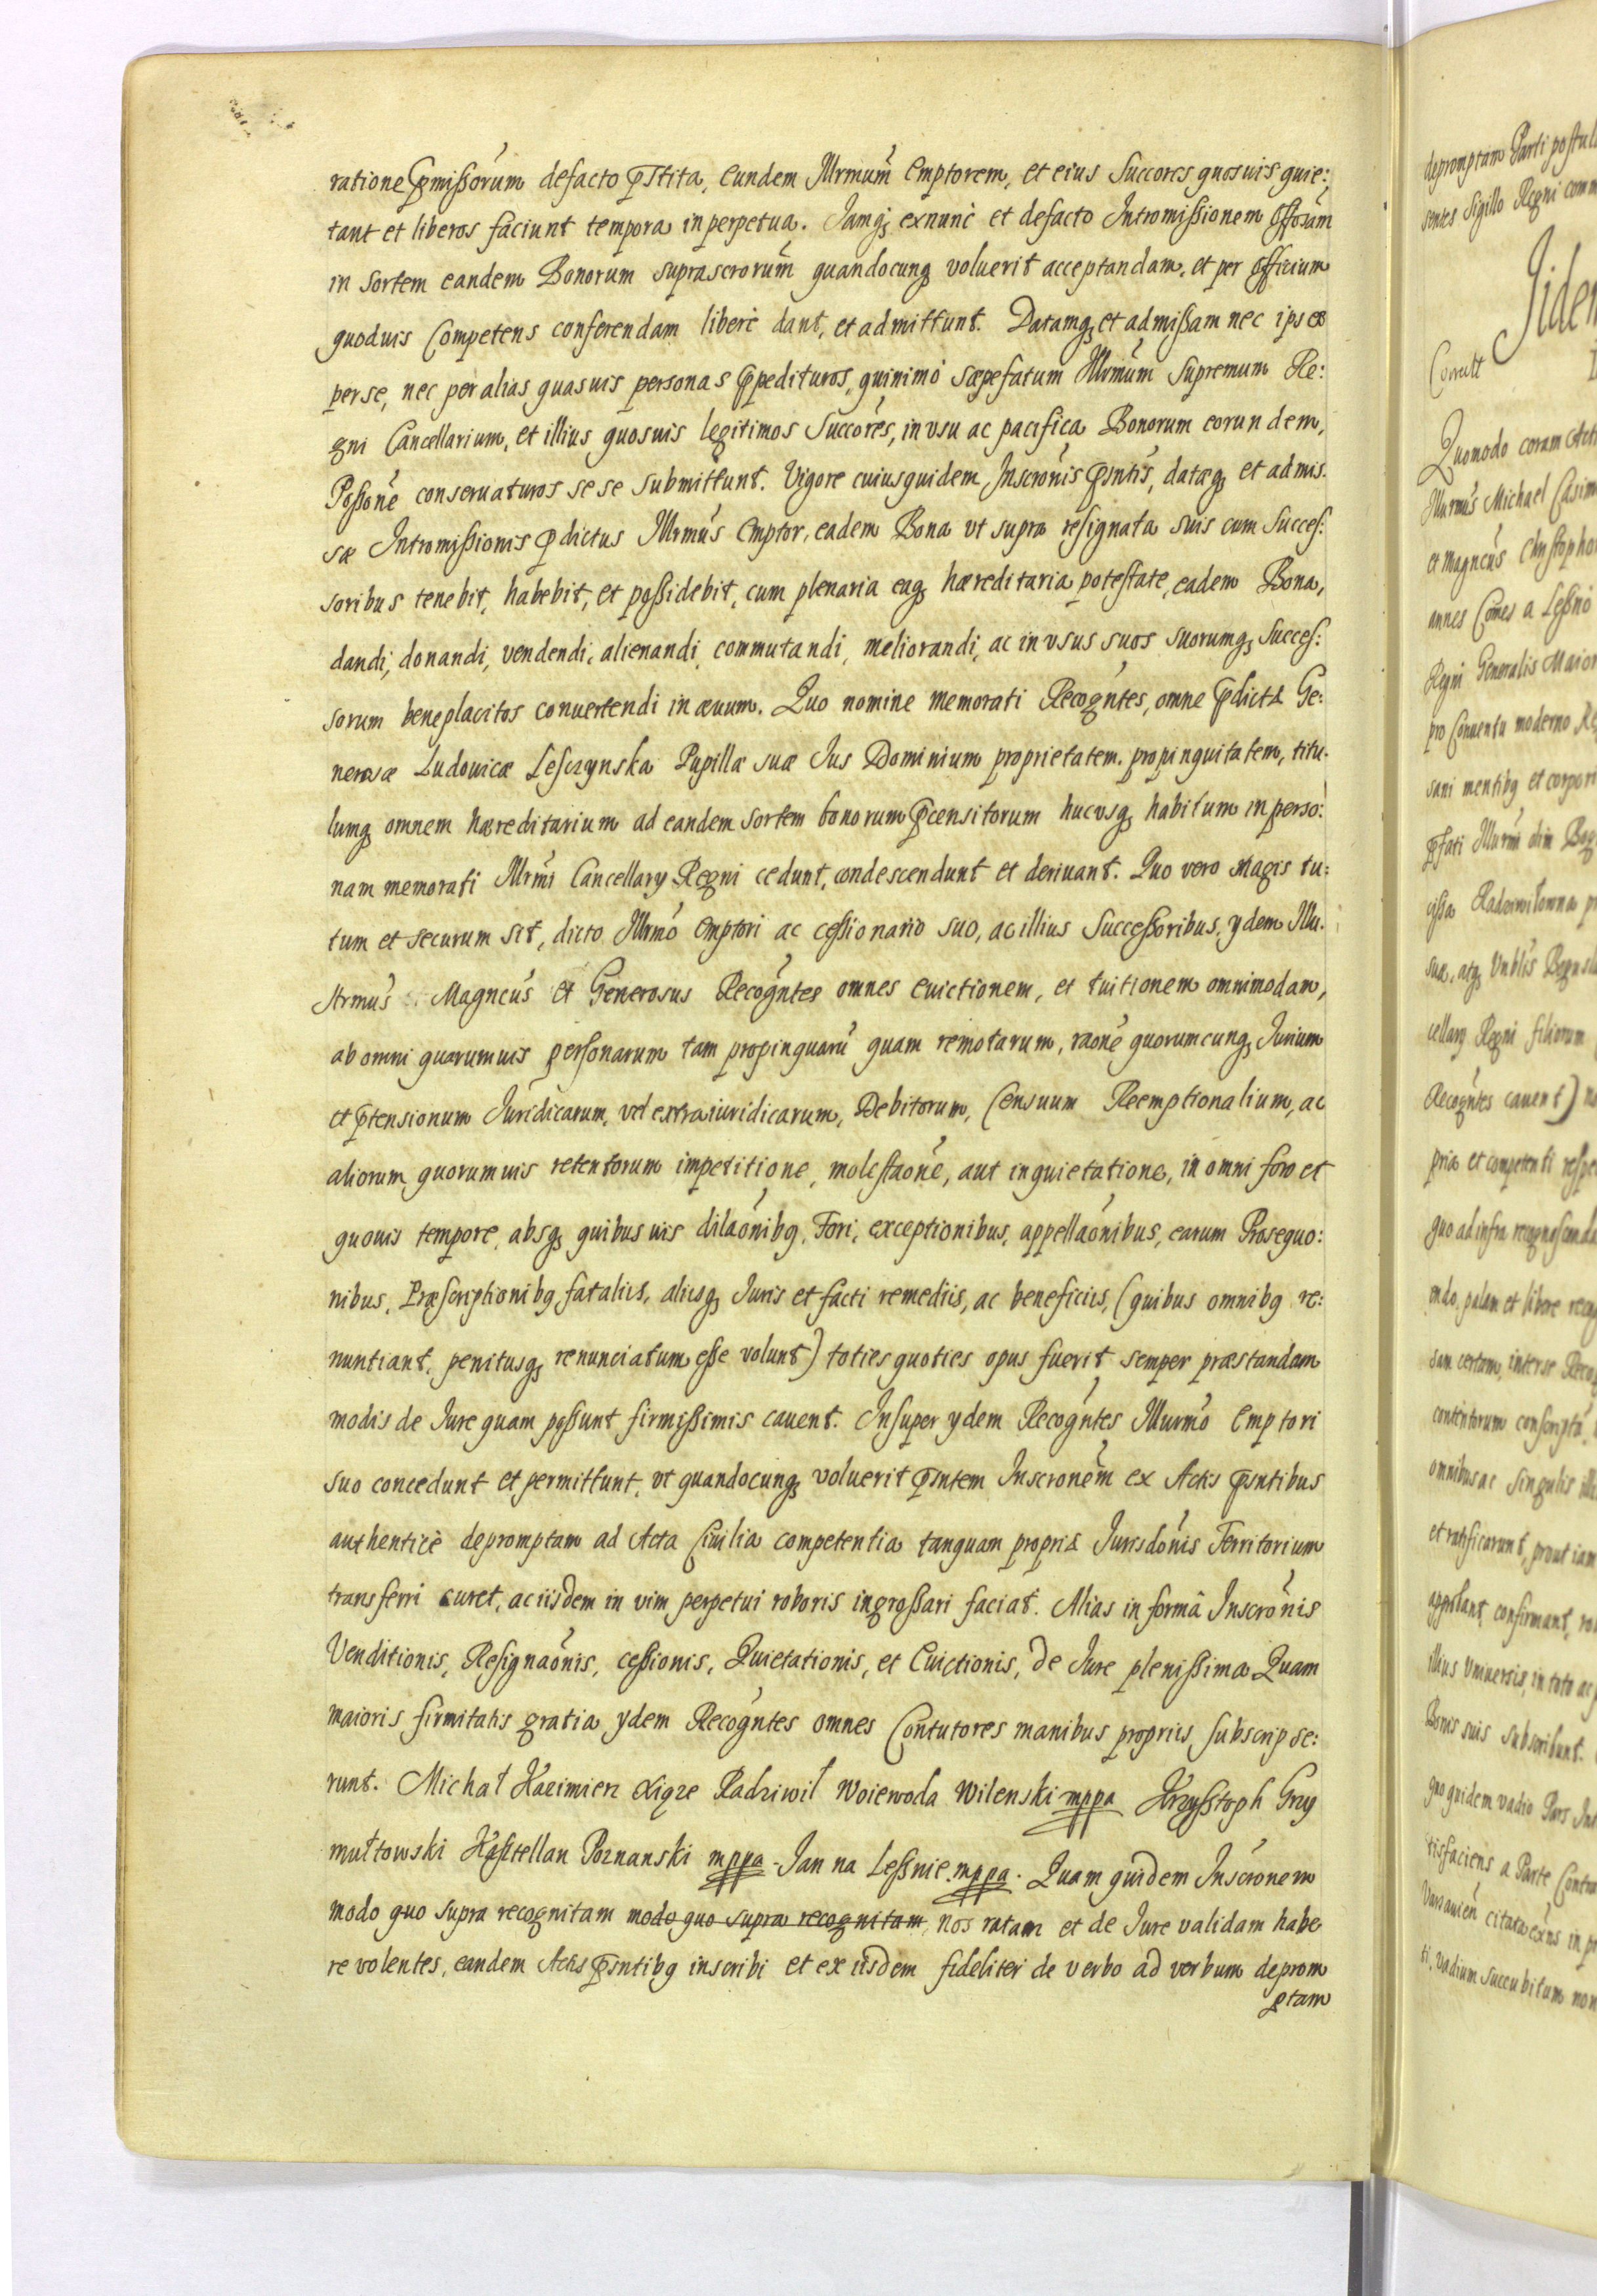 ratione p̄missorum defacto p̄stita, eundem Illrmum̃ Emptorem, et eius Succores quosuis quie:
tant et liberos faciunt tempora in perpetua. Iamq; exnunc et defacto Intromissionem Offosam̃
in Sortem eandem Bonorum suprascrorum̃ quandocunq; voluerit acceptandam, et per Officium
quoduis Competens conferendam liberè dant, et admittunt. Datamq; et admissam nec ipsos
per se, nec per alias quasuis personas p̄pedituros, quinimò sæpefatum Illrmum̃ Supremum Re:
gni Cancellarium, et illius quosuis legitimos Succorẽs, in vsu ac pacifica Bonorum eorundem,
Possonẽ conseruaturos sese submittunt. Vigore cuiusquidem Inscronis̃ p̄sntis̃, datæq; et admis.
sæ Intromissionis p̄dictus Illrmus̃ Emptor, eadem Bona vt supra resignata suis cum Succes:
soribus tenebit, habebit, et possidebit, cum plenaria eaq; hæreditaria potestate, eadem Bona,
dandi, donandi, vendendi, alienandi, commutandi, meliorandi, ac in vsus suos suorumq; Succes:
sorum beneplacitos conuertendi in æuum. Quo nomine memorati Recogñtes, omne p̄dictæ Ge:
nerosæ Ludouicæ Lesczynska Pupillæ suæ Ius Dominium proprietatem, propinquitatem, titu.
lumq; omnem hæreditarium ad eandem sortem bonorum p̄censitorum hucvsq; habitum in perso:
nam memorati Illrmi̇̃ Cancellary Regni cedunt, condescendunt et deriuant. Quo vero magis tu:
tum et securum sit, dicto Illrmõ Emptori ac cessionario suo, ac illius Successoribus, ydem Illu.
strmus̃ Magncus̃ et Generosus Recogñtes omnes euictionem, et tuitionem omnimodam,
ab omni quarumuis personarum tam propinquarũ quam remotarum, raonẽ quorumcunq; Iurium
et p̄tensionum Iuridicarum, vel extraiuridicarum, Debitorum, Censuum Reemptionalium, ac
aliorum quorumuis retentorum impetitione, molestaonẽ, aut inquietatione, in omni foro et
quouis tempore, absq; quibusuis dilaonibq̃, Fori, exceptionibus, appellaonibus̃, earum Prosequo:
nibus, Præscriptionibq; fataliis, aliisq; Iuris et facti remediis, ac beneficiis, (quibus omnibq re:
nuntiant, penitusq; renunciatum esse volunt) toties quoties opus fuerit semper præstandam
modis de Iure quam possunt firmissimis cauent. Insuper ydem Recogñtes Illurmõ Emptori
suo concedunt et permittunt, vt quandocunq; voluerit p̄sntem Inscronẽm ex Actis p̄sntibus
authenticè depromptam ad Acta Ciuilia competentia tanquam propriæ Iurisdonis̃ Territorium
transferri curet, ac iisdem in vim perpetui roboris ingrossari faciat. Alias in formâ Inscronis̃
Venditionis, Resignaonis̃, cessionis, Quietationis, et Euictionis, de Iure plenissima. Quam
maioris firmitatis gratia ydem Recogñtes omnes Contutores manibus propriis subscripse:
runt. Michał Kazimierz Xiąze Radziwił Woiewoda Wilenski mppa Krzysztoph Grzy
mułtowski Kasztellan Poznanski mppa - Ian na Lessnie mppa. Quam quidem Inscronem̃
modo quo supra recognitam modo quo supra recognitam, nos ratam et de Iure validam habe
re volentes, eandem Actis p̄sntibq inscribi et ex iisdem fideliter de verbo ad verbum deprom
ptam
depromptam Parti postul
sentes Sigillo Regni comm
Correct
Quomodo coram Acti
Illurmus̃ Michael Casim
et Magncus̃ Christophor
annes Comes a Lessno
Regni Generalis Maior
pro Conuentu moderno Re
sani mentibq et corpori
cellary Regni filiorum
Recogñtes cauent) no
pria et competenti respe
quo ad infra recognoscenda
endo, palam et libere recog
contentorum conscripta
omnibus ac singulis illi
et ratificarunt, prout iam
illius Vniuersis, in toto ac
Bonis suis subscribunt.
quo quidem vadio Pars
tisfaciens a Parte Contra
ti, vadium succubitum non